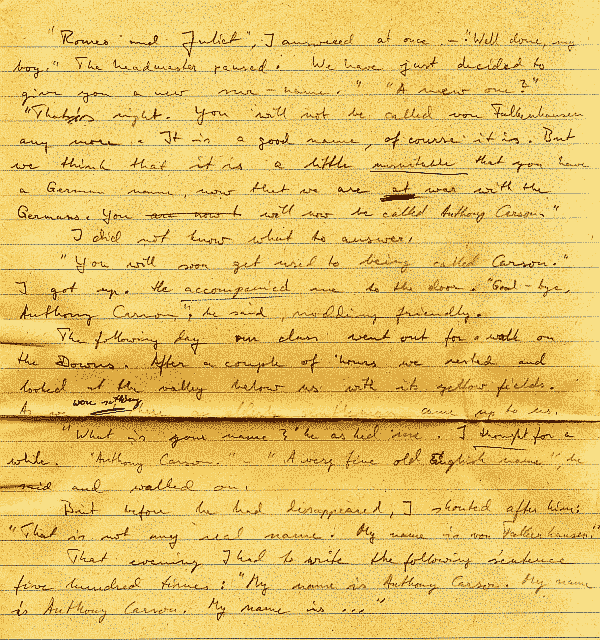 "Romeo and Juliet", I answered at once. - "Well done, my
boy." The headmaster paused. We have just decided to
give you a new sur-name." "A new one?"
"That is right. You will not be called von Falkenhausen
any more. It is a good name, of course it is. But
we think that it is a little unsuitable that you have
a German name, now that we are at war with the
Germans. You are now t will now be called Anthony Carson."
I did not know what to answer.
"You will soon get used to being called Carson."
I got up. He accompanied me to the door. "Good-bye,
Anthony Carson", he said, nodding friendly.
The following day our class went out for a walk on
the Downs. After a couple of hours we rested and
looked at the valley below us with its yellow fields.
were sitting
As we came up to us.
"What is your name?" he asked me. I thought for a
while. "Anthony Carson." - "A very fine old English name", he
said and walked on.
But before he had disappeared, I shouted after him:
"That is not my real name. My name is von Falkenhausen!"
That evening I had to write the following sentence
five hundred times: "My name is Anthony Carson. My name
is Anthony Carson. My name is ..."